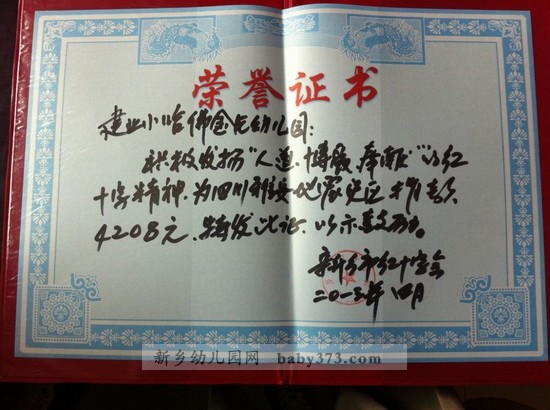 荣誉证书
建业小哈佛金龙幼儿园:
积极发扬“人道、博爱、奉献”的红
十字精神,为四川雅安地震灾区捐款
4208元,特发此证,以示鼓励。
新乡市红十字会
二〇一三年四月
新乡幼儿园网 baby373.com